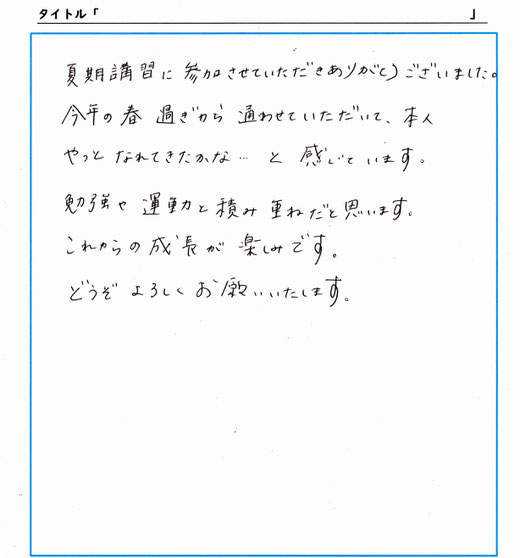 タイトル「 」
夏期講習に参加させていただきありがとうございました。
今年の春過ぎから通わせていただいて、本人
やっとなれてきたかな…と感じています。
勉強や運動と積み重ねだと思います。
これからの成長が楽しみです。
どうぞよろしくお願いいたします。